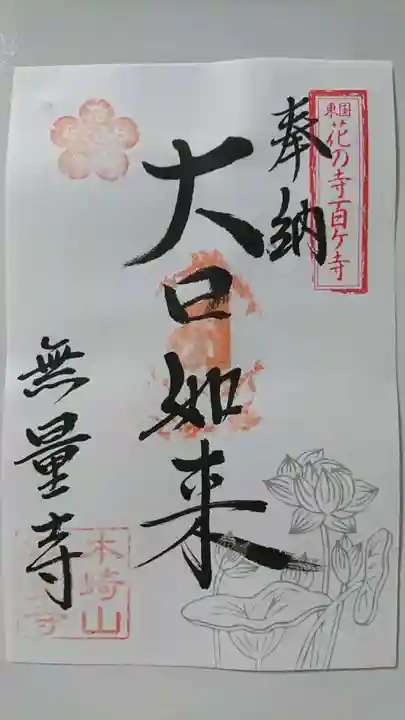 東国
花の寺百ヶ寺
奉納
大日如来
無量寺
木崎山